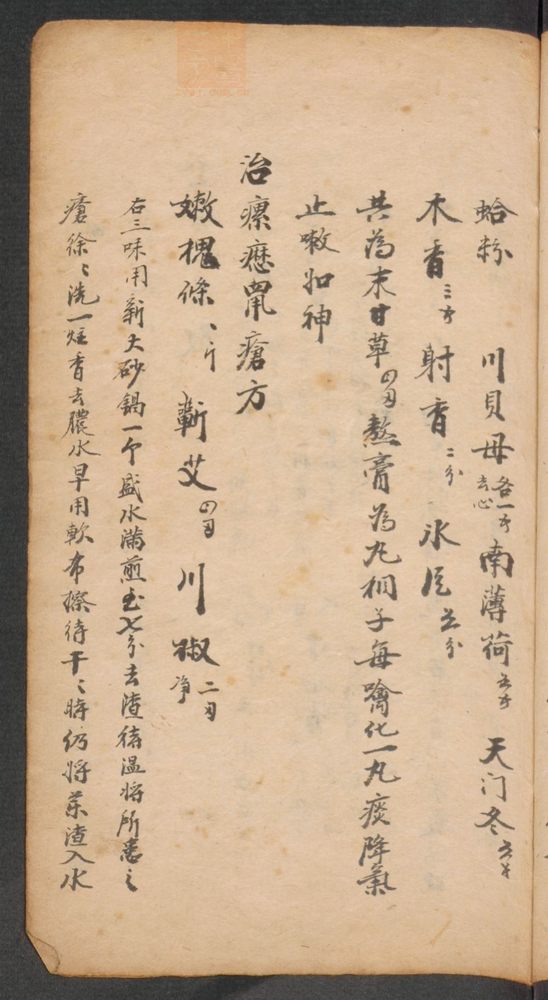 蛤粉 川貝母各一才去心 南薄荷五才 天门冬六才
木香三才 射香二分 氷片五分
共為末甘草四両熬膏為丸桐子每噙化一丸痰降氣
止嗽如神
治瘰癧鼠瘡方
嫩槐條一斤 蘄艾四両 川椒二両净
右三味用新大砂鍋一个盛水滿煎至七分去渣待溫将所患之
瘡徐〻洗一炷香去膿水早用軟布擦待干〻時仍将藥渣入水